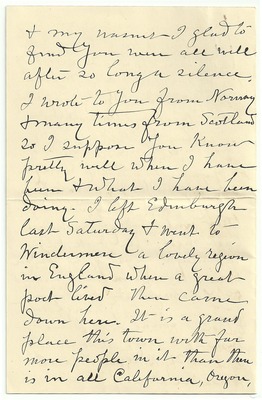 & my wasnt I glad to
find you were all well
after so long a silence.
I wrote to you from Norway
& many times from Scotland
so I suppose you know
pretty well where I have
been & what I have been
doing. I left Edinburgh
last Saturday & went to
Windermere a lovely region
in England where a great
poet lived then came
down here. It is a grand
place this town with far
more people in it than there
is in all California, Oregon